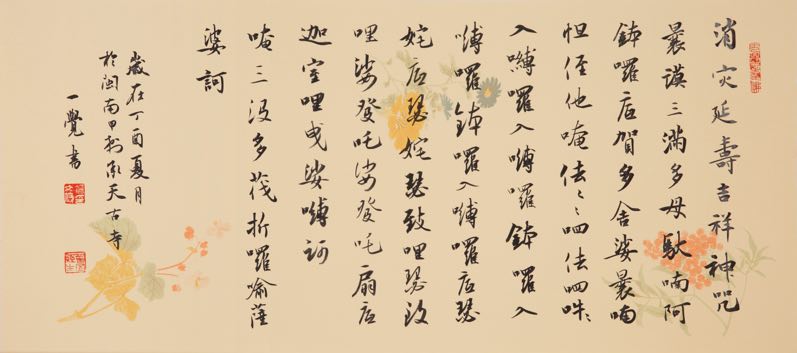 消灾延壽吉祥神咒
曩謨三滿多母馱喃阿
鉢囉底賀多舍娑曩喃
怛侄他唵佉〻呬佉呬吽〻
入嚩囉入嚩囉鉢囉入
嚩囉鉢囉入嚩囉底瑟
姹底瑟姹瑟致哩瑟致
哩娑發吒娑發吒扇底
迦室哩曳娑嚩訶
唵三没多茷折囉喻薩
婆訶
歲在丁酉夏月
於閩南甲刹承天古寺
一覺書